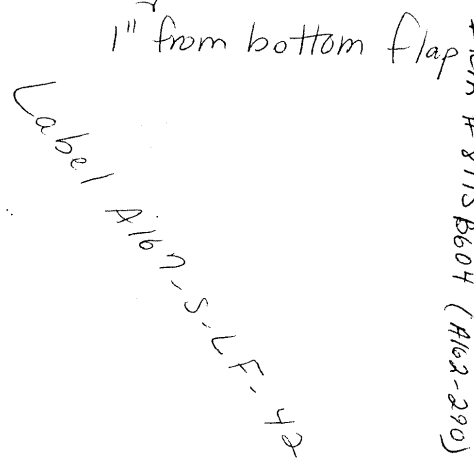 1" from bottom flap
Label A167-S-LF-42
# 8115B604 (A162-290)